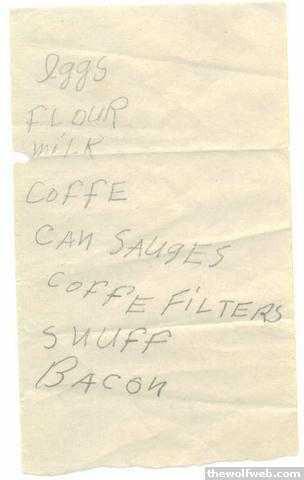 Iggs
FLOUR
milk
COFFE
CAN SAUGES
COFFE FILTERS
SNUFF
BACON
thewolfweb.com